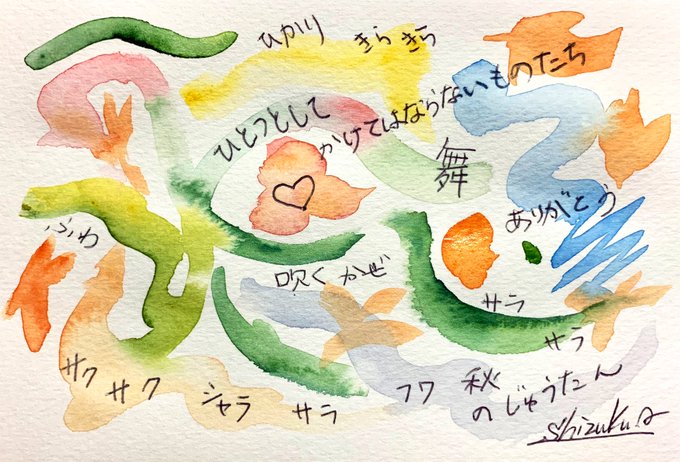 ひかり きらきら
ひとつとして かけてはならないものたち
舞
ありがとう
ふわ
吹く かぜ
サラ
サラ
サク サク シャラ サラ
フワ
秋
のじゅうたん
Shizuku